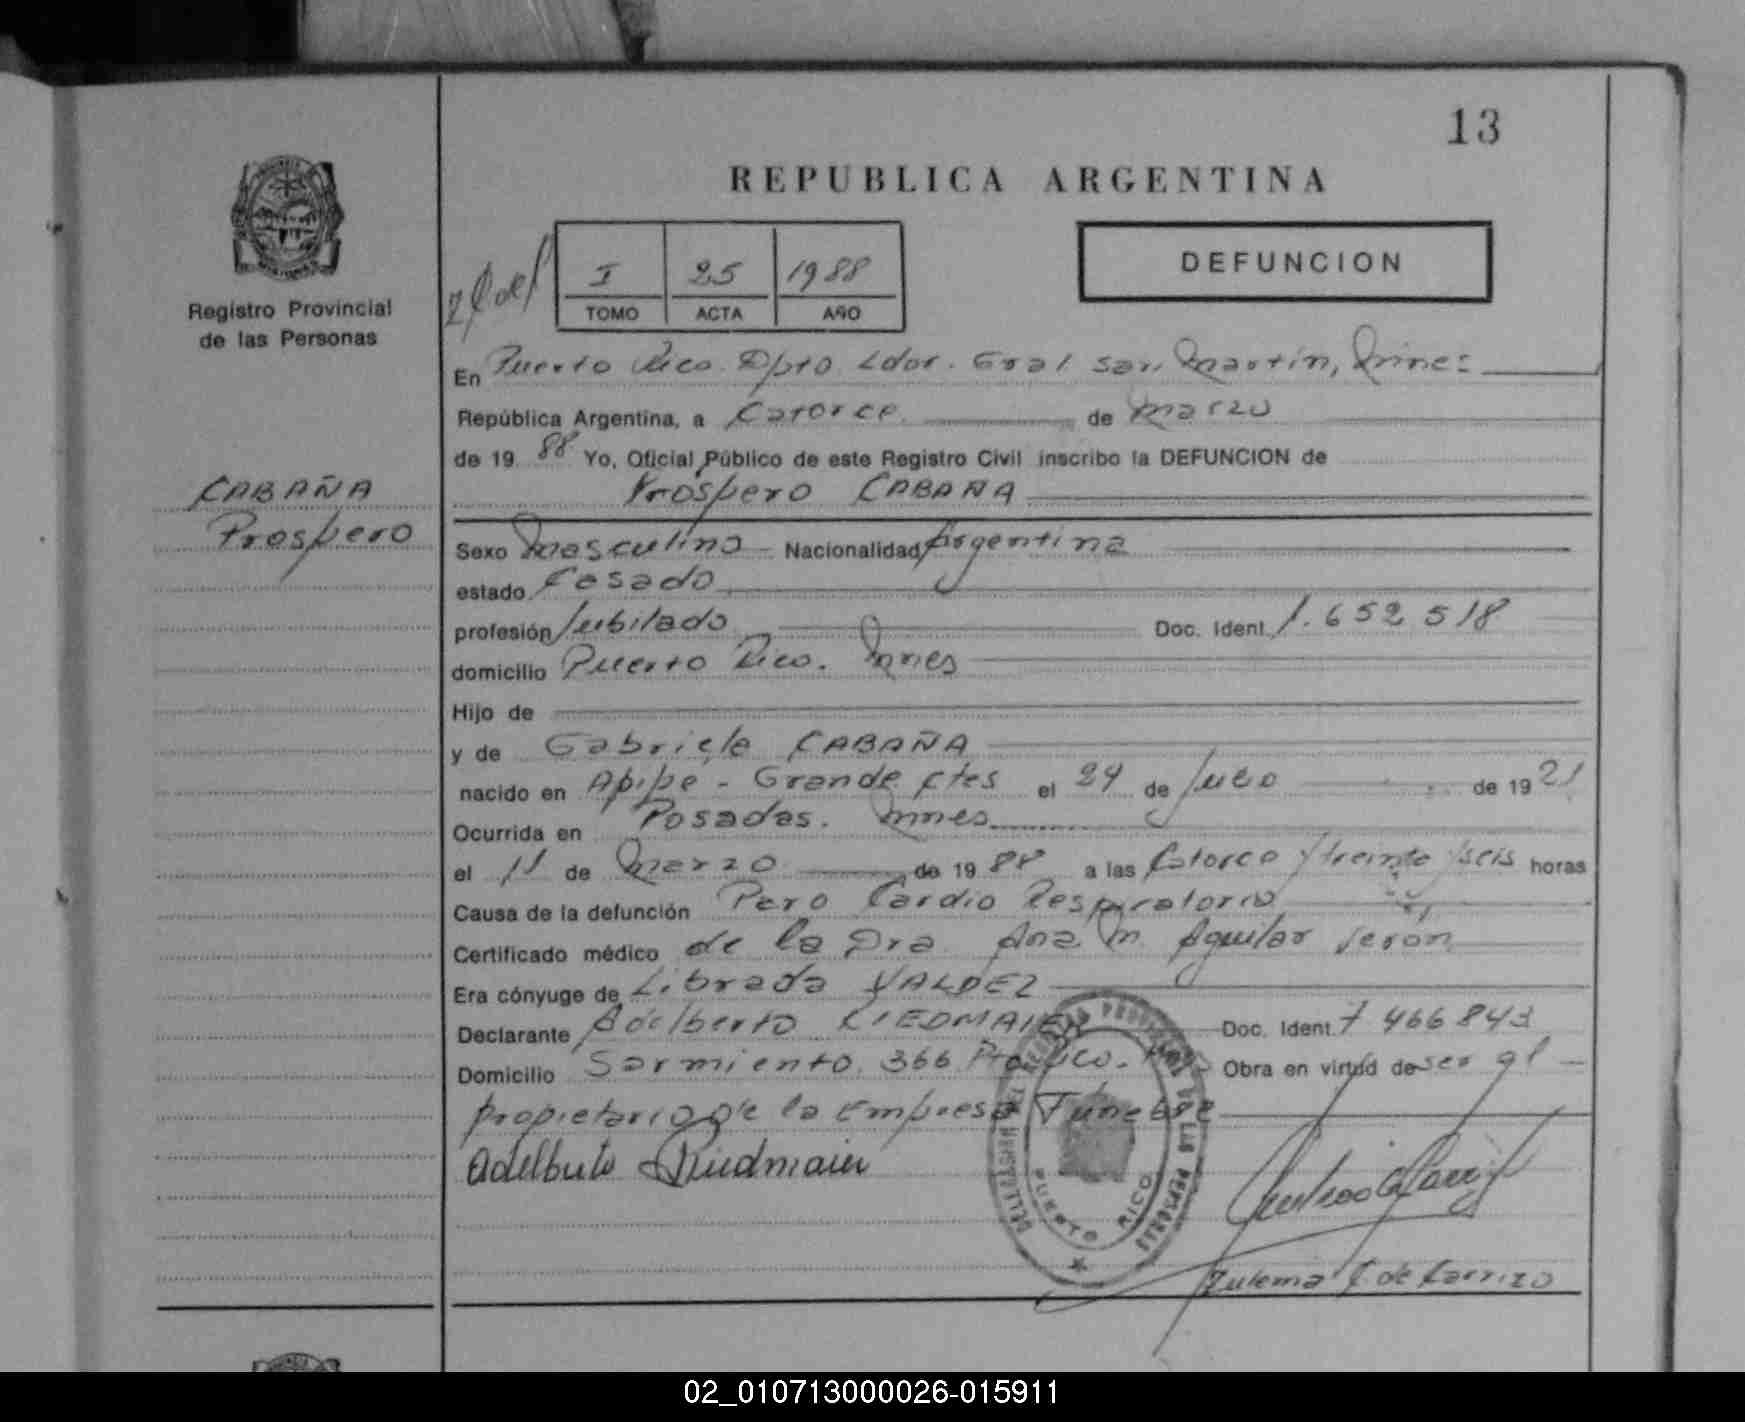 13
REPUBLICA ARGENTINA
Registro Provincial
de las Personas
I 25 1988
TOMO ACTA AÑO
DEFUNCION
CABAÑA
Prospero
En Puerto Rico. Dpto. Ldor. Gral San Martín, Mnes
República Argentina, a Catorce de Marzo
de 19 88 Yo, Oficial Público de este Registro Civil inscribo la DEFUNCION de
Próspero CABAÑA
Sexo Masculino Nacionalidad Argentina
estado Casado
profesión Jubilado Doc. Ident. 1.652.518
domicilio Puerto Rico. Mnes
Hijo de
y de Gabriela CABAÑA
nacido en Apipe - Grande Ctes el 24 de Julio de 19 21
Ocurrida en Posadas. Mnes
el 11 de Marzo de 19 88 a las Catorce y treinta y seis horas
Causa de la defunción Paro Cardio Respiratorio
Certificado médico de la Dra Ana M. Aguilar Verón
Era cónyuge de Librada VALDEZ
Declarante Adelberto RIEDMAIER Doc. Ident. 7 466 843
Domicilio Sarmiento. 366 Pto Rico. Mnes Obra en virtud de ser el
propietario de la Empresa Funebre
Adelberto Riedmaier
DELEGACION DEL REGISTRO PROVINCIAL DE LAS PERSONAS
PUERTO RICO
Zulema de Carrizo
02_010713000026-015911